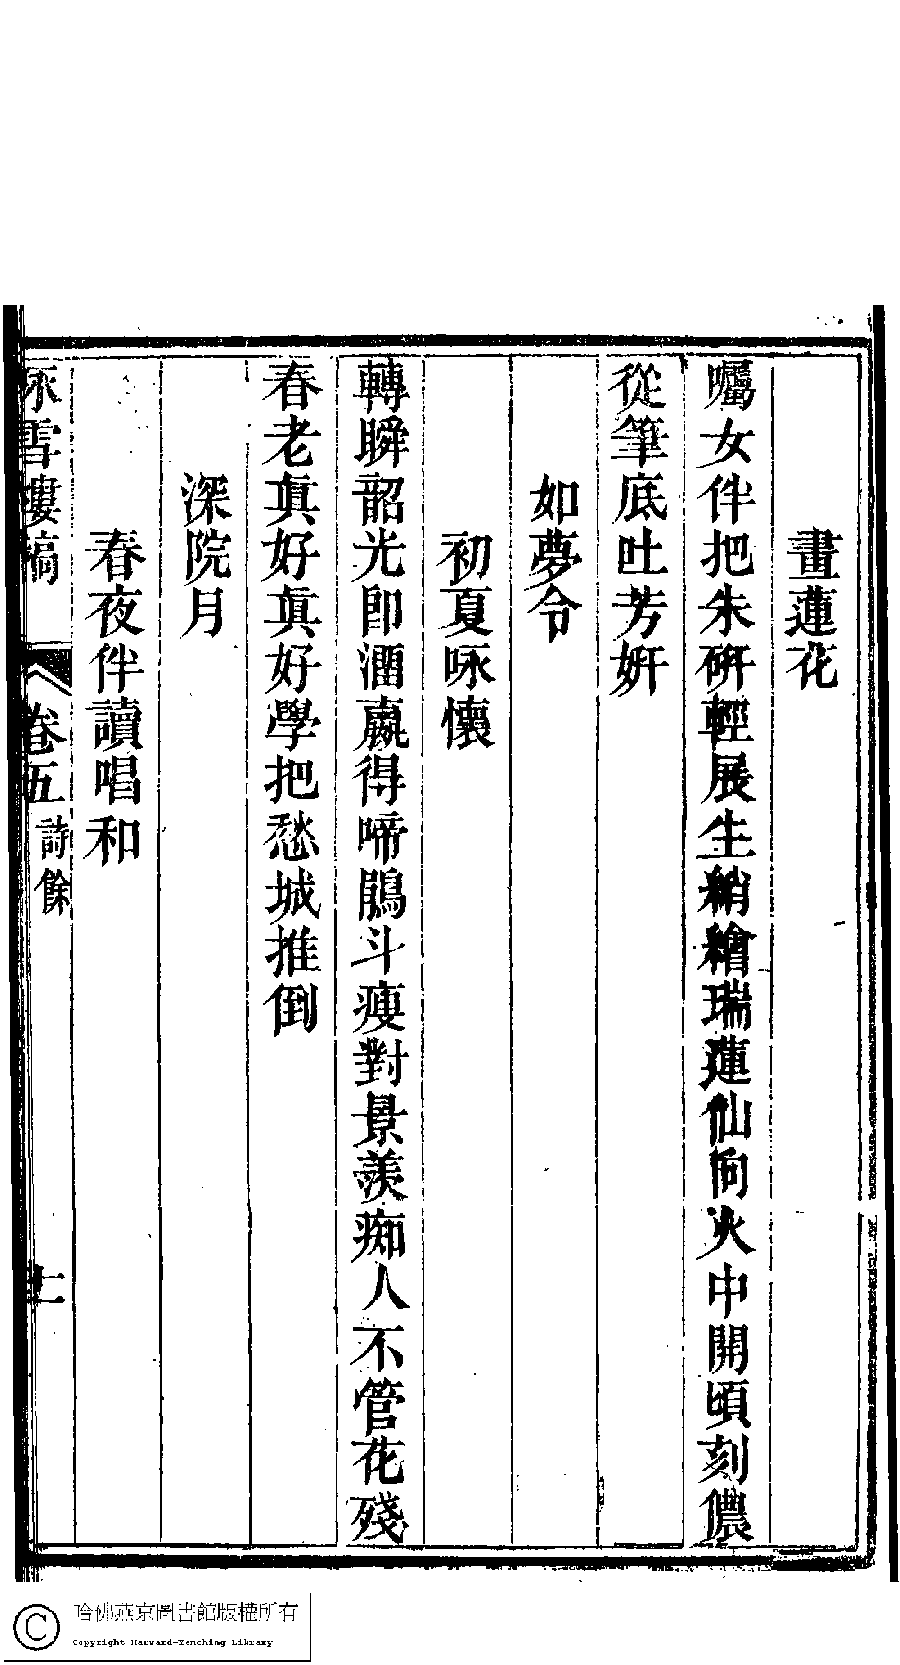 畫蓮花
囑女伴把朱硏輕展生綃繪瑞蓮仙向火中開頃刻儂
從筆底吐芳姸
如夢令
初夏咏懷
轉瞬韶光卽溜嬴得啼鵑斗瘦對景羨痴人不管花殘
春老眞好眞好學把愁城推倒
深院月
春夜伴讀唱和
咏雪樓稿
卷五
詩餘
哈佛燕京圖書館版權所有
Copyright Harvard-Yenching Library